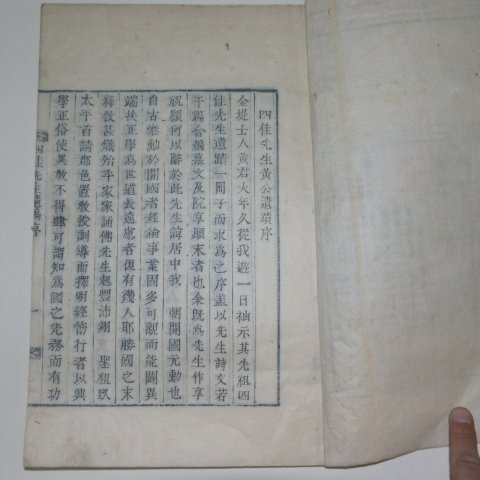 四佳先生黃公遺蹟序
金堤士人黃君大年久從我遊一日袖示其先祖四
佳先生遺蹟一冊子而求爲之序盖以先生詩文若
干篇合碣墓文及院享顚末者也余旣爲先生作享
祝顧何以辭於此先生諱居中我 朝開國元勳也
自古樂動於開國者經論事業固多可觀而能闢異
端扶正學爲世道去遠慮者復有幾人耶勝國之末
釋敎甚熾殆乎家家誦傳先生起豐沛翊 聖祖以
太平百請郡邑置敎授訓導而擇明經飭行者以興
學正俗使異敎不得肆可謂知爲國之先務而有功
四佳先生遺稿序 一